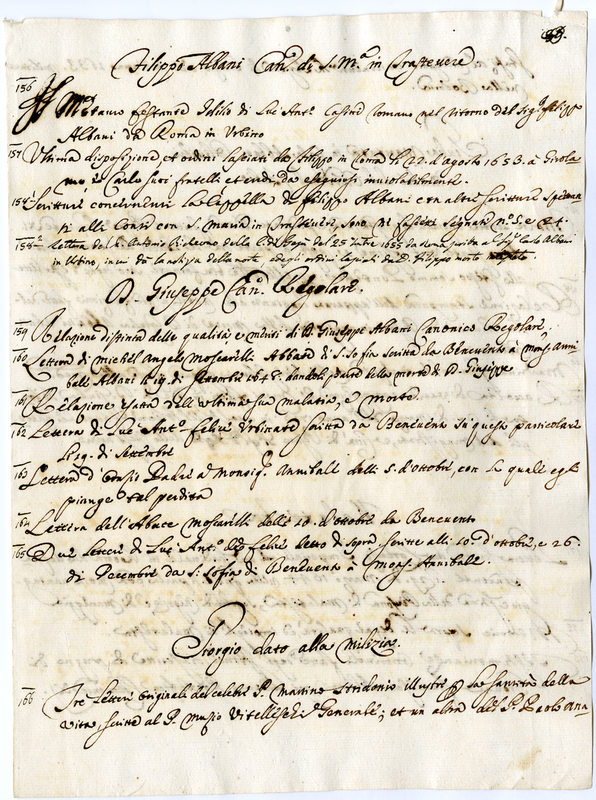 Filippo Albani Can.º di S. M.ª in Trastevere
156
festante Idilio di Luc' Ant.º Casini Romano nel ritorno del Sig.r Filippo
Albani da Roma in Urbino
157 Ultima disposizione et ordini lasciati da Filippo in Roma li 22. d'agosto 1653. à Girola
mo, e Carlo suoi fratelli et eredi, da eseguirsi inviolabilmente.
158 Scritture concernenti la Cappella di Filippo Albani con altre scritture
ti alli Conti con S. Maria in Trastevere, sono ne fascetti segnati n.º 5. e 24.
158 Lettera del Antonio della del 25 1655 da Roma scritta al Sig.r Carlo Albani
in Urbino, in cui dà la della morte, e degli ordini lasciati da D. Filippo morto
D. Giuseppe Can.º Regolare.
159 Relazione distinta delle qualità, e meriti di D. Giuseppe Albani Canonico Regolare,
160 Lettera di Michel'Angelo Moscarelli Abbate di S. Sofia scritta da Benevento à Mons. Anni-
bale Albani li 19. di Settembre 164 dandoli parte della morte di D. Giuseppe
161 Relazione esatta dell'ultima sua malatia, e morte.
162 Lettera di Luc' Ant.º Felici Urbinate scritta da Benevento in questo particolare
li 19. di Settembre
163 Lettera d'Orazio Padre à Monsig.r Annibale delli 5. d'ottobre, con la quale egli
piange tal perdita
164 Lettera dell'Abate Moscarelli delli 10. d'ottobre da Benevento
165 Due lettere di Luc' Ant.º Felici detto di sopra scritte alli 10. d'ottobre, e 26.
di Decembre da S. Sofia di Benevento à Mons. Annibale.
Giorgio dato alla Milizia.
166 Tre Lettere originali del celebre P. Martino Stridonio illustre p la santità della
vita, scritte al P. Muzio Vitelleschi Generale; et un altra del P. Paolo Ana-